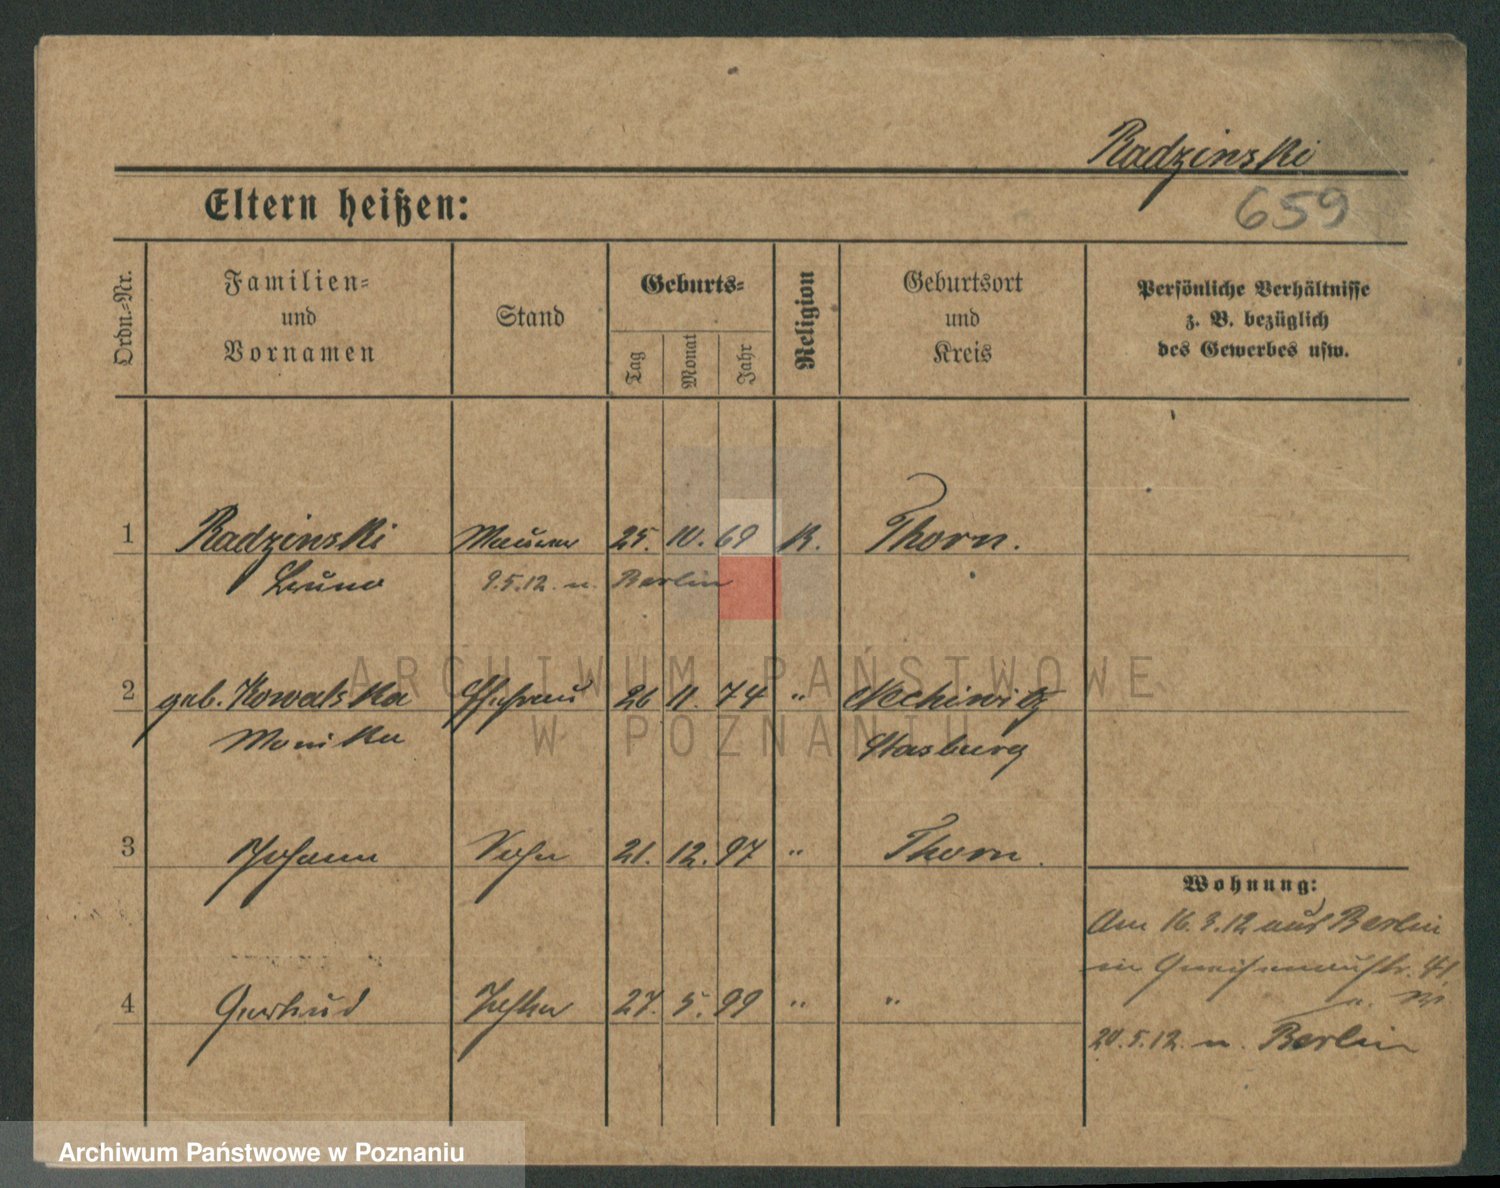 Radzinski
659
Eltern heißen:
Ordn.-Nr.
Familien-
und
Vornamen
Stand
Geburts-
Tag
Monat
Jahr
Religion
Geburtsort
und
Kreis
Persönliche Verhältnisse
z. B. bezüglich
des Gewerbes usw.
1 Radzinski Maurer 25. 10. 69 K. Thorn.
Bruno 9.5.12. n. Berlin
2 geb. Kowalska Ehefrau 26 11. 74 "
Monika Stasburg
3 Johann Sohn 21. 12. 97 " Thorn.
4 Gertrud Tochter 27. 5. 99 " "
Wohnung:
Am 16.3.12 aus Berlin
in Gneisenaustr. 41
20.5.12. n. Berlin
ARCHIWUM PAŃSTWOWE
W POZNANIU
Archiwum Państwowe w Poznaniu